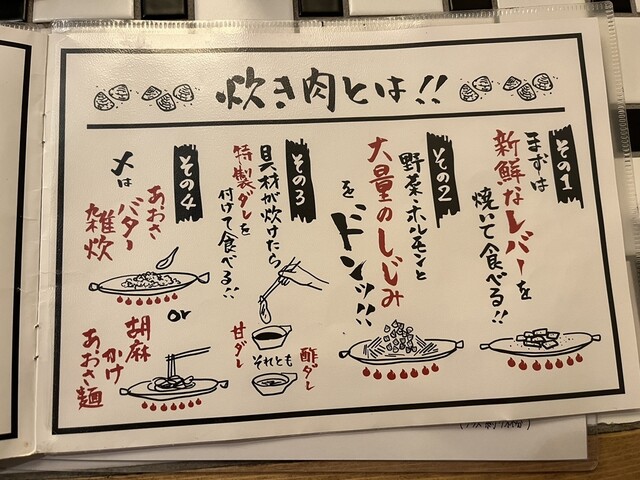 炊き肉とは!!
その1
まずは
新鮮なレバーを
焼いて食べる!!
その2
野菜・ホルモンと
大量のしじみ
を
ドンッ!!
その3
具材が炊けたら
特製ダレを
付けて食べる!!
酢ダレ
それとも
甘ダレ
その4
〆は
あおさ
バター
雑炊
or
胡麻
かけ
あおさ麺